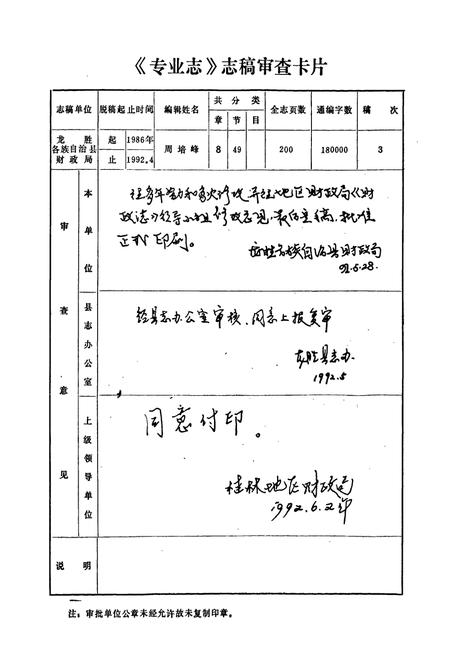 《专业志》志稿审查卡片
志稿单位 脱稿起止时间 编辑姓名 共分类 全志页数 通编字数 稿次
章 节 目
龙胜各族自治县财政局 起 1986年 周培峰 8 49 200 180000 3
止 1992.4
审查意见
本单位
经多年努力和多次修改,并经地区财政局《财
政志》领导小组修改意见,最后定稿,批准
正式印刷。
龙胜各族自治县财政局
92.5.28.
县志办公室
经县志办公室审核,同意上报复审
龙胜县志办
1992.5
上级领导单位
同意付印。
桂林地区财政局
1992.6.2
说明
注:审批单位公章未经允许故未复制印章。